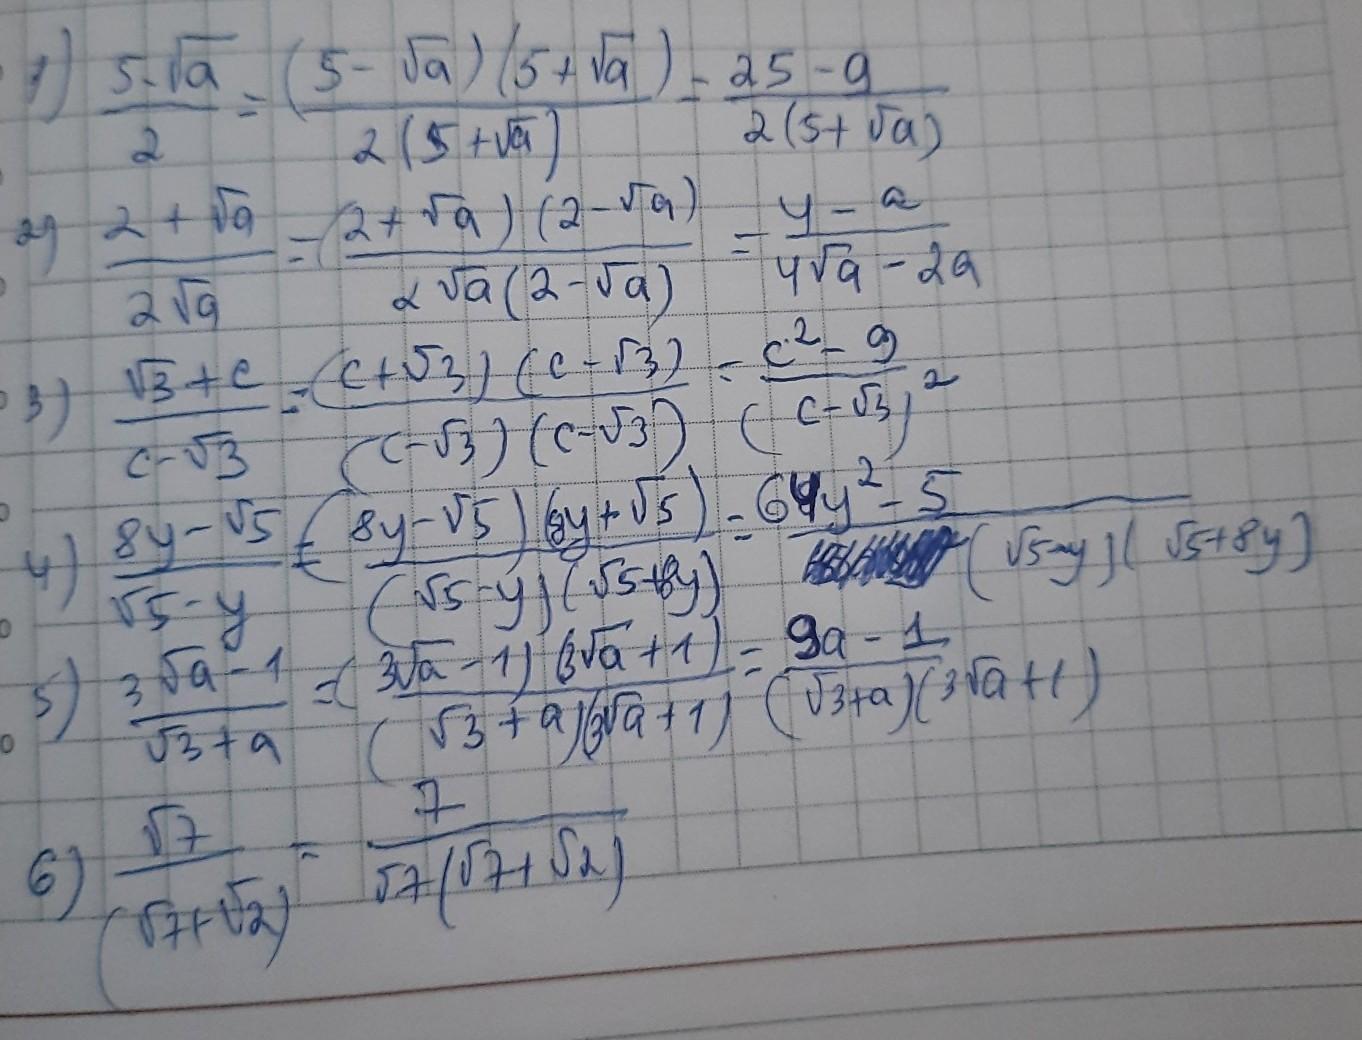 1) (5-√a)/2 = ((5-√a)(5+√a))/(2(5+√a)) - (25-a)/(2(5+√a))
2) (2+√a)/(2√a) = ((2+√a)(2-√a))/(2√a(2-√a)) = (4-a)/(4√a-2a)
3) (√3+c)/(c-√3) = ((c+√3)(c-√3))/((c-√3)(c-√3)) = (c²-9)/(c-√3)²
4) (8y-√5)/(√5-y) = ((8y-√5)(8y+√5))/((√5-y)(√5+8y)) = (64y²-5)/((√5-y)(√5+8y))
5) (3√a-1)/(√3+a) = ((3√a-1)(3√a+1))/((√3+a)(3√a+1)) = (9a-1)/((√3+a)(3√a+1))
6) √7/(√7+√2) = 7/(√7(√7+√2))